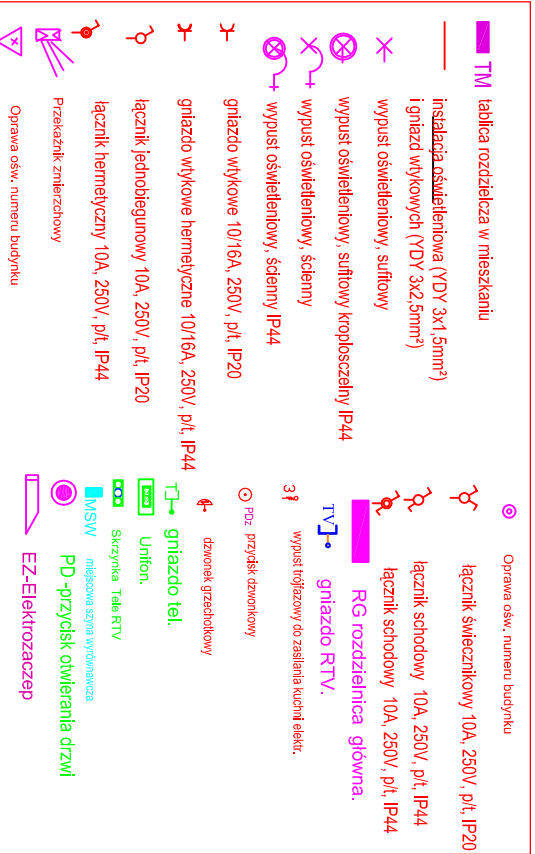 TM tablica rozdzielcza w mieszkaniu
instalacja oświetleniowa (YDY 3x1,5mm²)
i gniazd wtykowych (YDY 3x2,5mm²)
wypust oświetleniowy, sufitowy
wypust oświetleniowy, sufitowy kroploszczelny IP44
wypust oświetleniowy, ścienny
wypust oświetleniowy, ścienny IP44
gniazdo wtykowe 10/16A, 250V, p/t, IP20
gniazdo wtykowe hermetyczne 10/16A, 250V, p/t, IP44
łącznik jednobiegunowy 10A, 250V, p/t, IP20
łącznik hermetyczny 10A, 250V, p/t, IP44
Przekaźnik zmierzchowy
Oprawa ośw. numeru budynku
Oprawa ośw. numeru budynku
łącznik świecznikowy 10A, 250V, p/t, IP20
łącznik schodowy 10A, 250V, p/t, IP44
łącznik schodowy 10A, 250V, p/t, IP44
RG rozdzielnica główna.
TV gniazdo RTV.
3 wypust trójfazowy do zasilania kuchni elektr.
PDz przycisk dzwonkowy
dzwonek grzechotkowy
T gniazdo tel.
Unifon.
Skrzynka Tele RTV
MSW miejscowa szyna wyrównawcza
PD-przycisk otwierania drzwi
EZ-Elektrozaczep